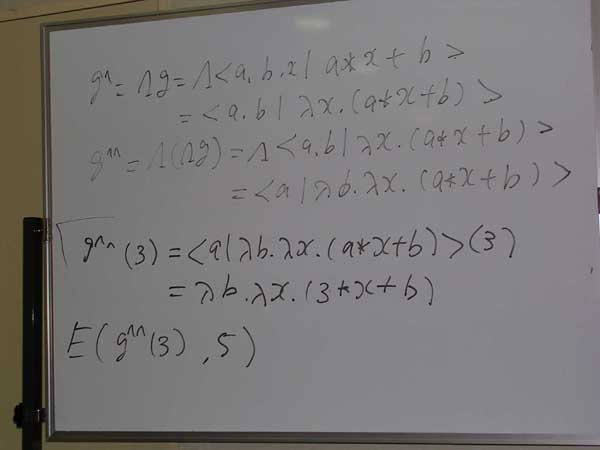 g^ = Λg = Λ<a.b.x| a*x+b>
= <a.b| λx.(a*x+b)>
g^^ = Λ(Λg) = Λ<a.b| λx.(a*x+b)>
= <a| λb.λx.(a*x+b)>
g^^(3) = <a| λb.λx.(a*x+b)>(3)
= λb.λx.(3*x+b)
E(g^^(3), 5)